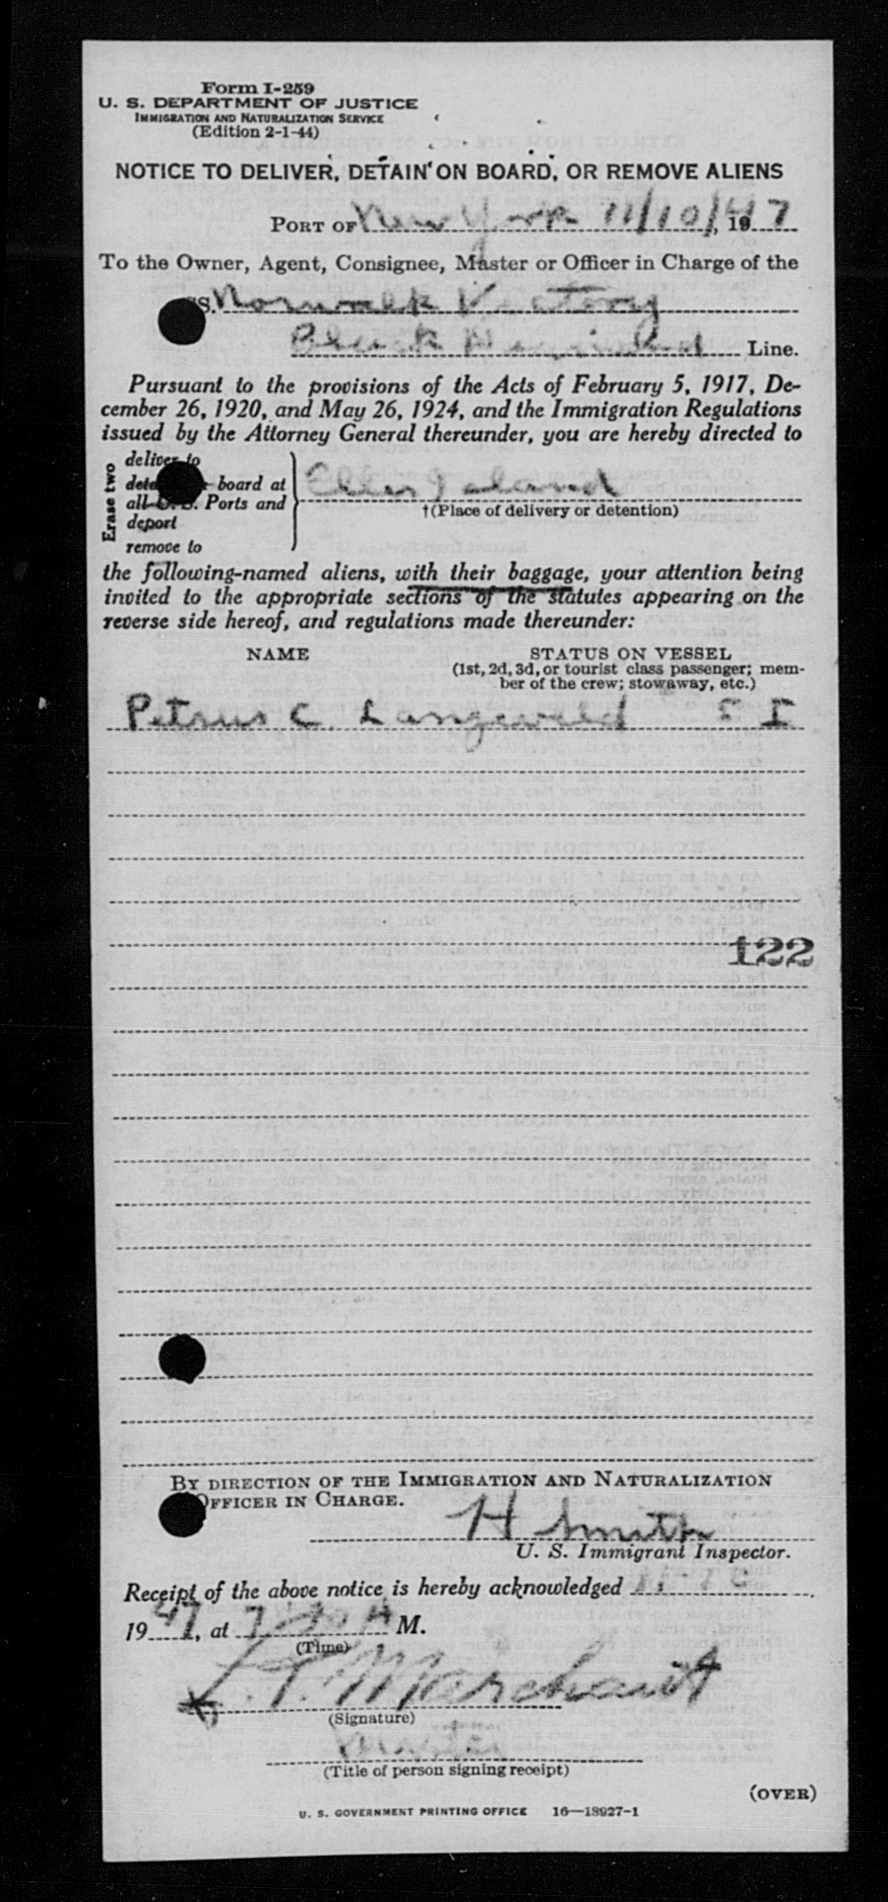 Form I-259
U. S. DEPARTMENT OF JUSTICE
IMMIGRATION AND NATURALIZATION SERVICE
(Edition 2-1-44)
NOTICE TO DELIVER, DETAIN ON BOARD, OR REMOVE ALIENS
PORT OF New York 11/10/, 1947
To the Owner, Agent, Consignee, Master or Officer in Charge of the
SS. Norwalk Victory
Black Line.
Pursuant to the provisions of the Acts of February 5, 1917, De-
cember 26, 1920, and May 26, 1924, and the Immigration Regulations
issued by the Attorney General thereunder, you are hereby directed to
Erase two
deliver to
board at
all U. S. Ports and
deport
remove to
Ellis Island
†(Place of delivery or detention)
the following-named aliens, with their baggage, your attention being
invited to the appropriate sections of the statutes appearing on the
reverse side hereof, and regulations made thereunder:
NAME STATUS ON VESSEL
(1st, 2d, 3d, or tourist class passenger; mem-
ber of the crew; stowaway, etc.)
Petrus C. Langeveld
122
BY DIRECTION OF THE IMMIGRATION AND NATURALIZATION
OFFICER IN CHARGE.
H Smith
U. S. Immigrant Inspector.
Receipt of the above notice is hereby acknowledged
1947, at A M.
(Time)
L. T. Marchant
(Signature)
Master
(Title of person signing receipt)
(OVER)
U. S. GOVERNMENT PRINTING OFFICE 16—18927-1